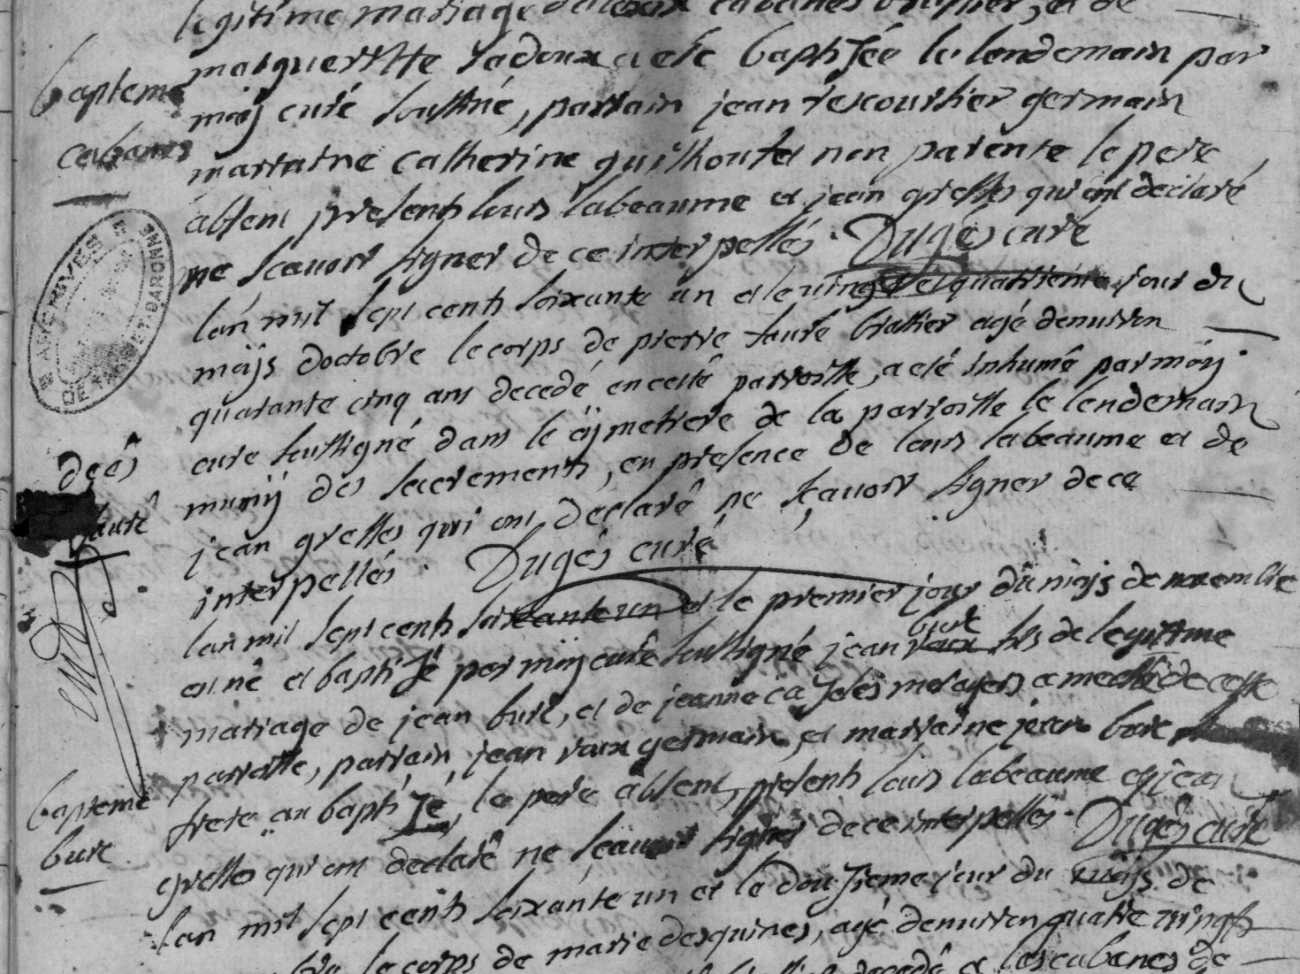 legitime mariage de cabanes brassier, et de
margueritte ladoux a eté baptisée le lendemain par
moÿ curé soussiné, parrain jean rescoussier germain
marraine catherine guilhoutet non parente le pere
absent presents louis labeaume et jean grelles qui ont declaré
ne scauoir signer de ce interpellés. Dugés curé
bapteme
cabanes
ARCHIVES DE TARN ET GARONNE
lan mil sept cents soixante un et le vingt et quatrieme jour du
mojs doctobre le corps de pierre faure brassier agé denuiron
quarante cinq ans decedé en cette parroisse, a eté inhumé par moÿ
curé soussigné dans le cÿmetiere de la parroisse le lendemain
muniÿ des sacrements, en presence de louis labeaume et de
jean grelles qui ont declaré ne scauoir signer de ce
interpellés. Dugés curé
decés
faure
lan mil sept cents soixante un et le premier jour du mojs de nouembre
est né et baptisé par moÿ curé soussigné jean bure fils de legitime
mariage de jean bure, et de jeanne metayers de cette
parroisse, parrain jean roux germain, et marraine jean bure
frere au baptisé, le pere absent, presents louis labeaume et jean
grelles qui ont declaré ne scauoir signer de ce interpellés. Dugés curé
bapteme
bure
lan mil sept cents soixante un et le douzieme jour du mojs de
le corps de marie desquines, agé denuiron quatre vingts
decedé a cabanes de